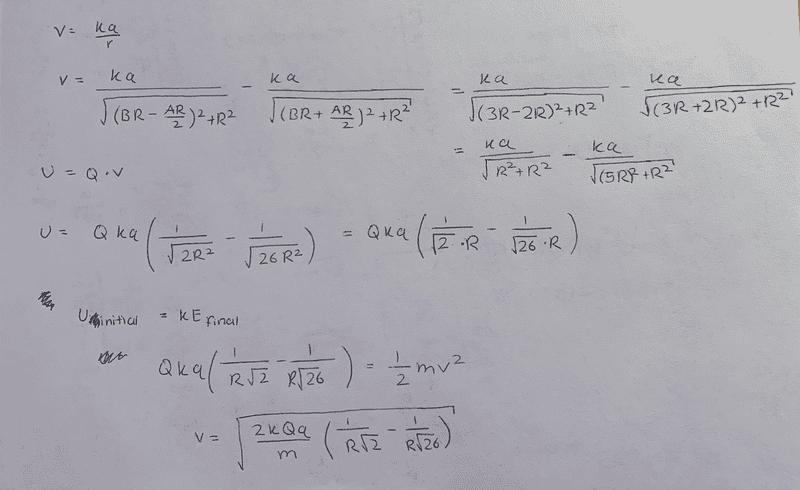 V = kq/r
V = kq/√((BR - AR/2)²+R²) - kq/√((BR + AR/2)²+R²) = kq/√((3R-2R)²+R²) - kq/√((3R+2R)²+R²)
= kq/√(R²+R²) - kq/√((5R)²+R²)
U = Q·V
U = Qkq(1/√(2R²) - 1/√(26R²)) = Qkq(1/(√2·R) - 1/(√26·R))
U initial = KE final
Qkq(1/(R√2) - 1/(R√26)) = 1/2 mv²
v = √(2kQq/m (1/(R√2) - 1/(R√26)))